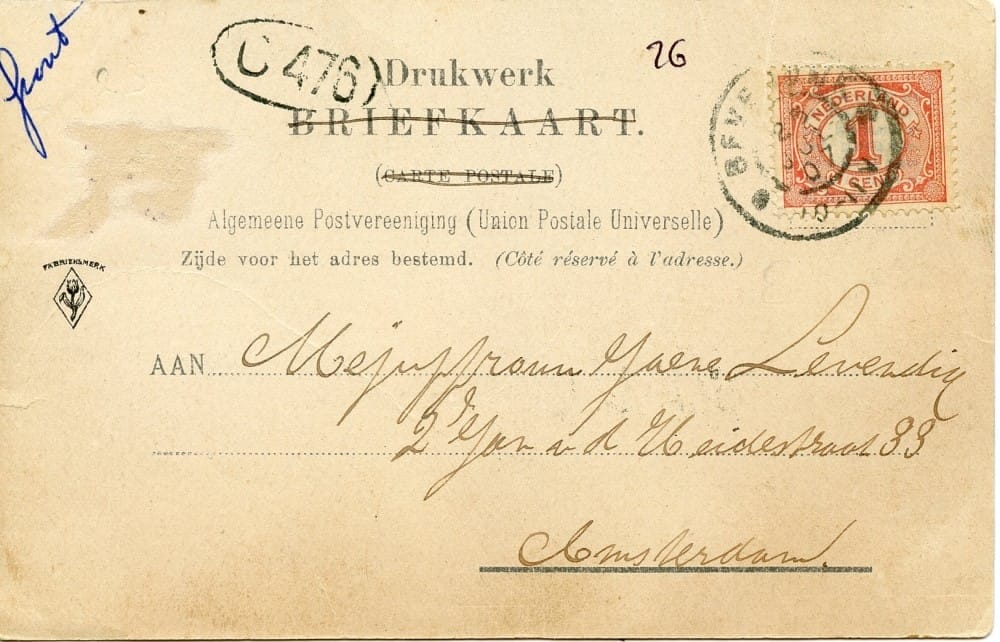 front
C 476
26
Drukwerk
BRIEFKAART.
(CARTE POSTALE)
NEDERLAND
1
CENT
Algemeene Postvereeniging (Union Postale Universelle)
Zijde voor het adres bestemd. (Côté réservé à l'adresse.)
FABRIEKSMERK
AAN Mejuffrouw Levendig
2e Jan v d Heidestraat 33
Amsterdam.